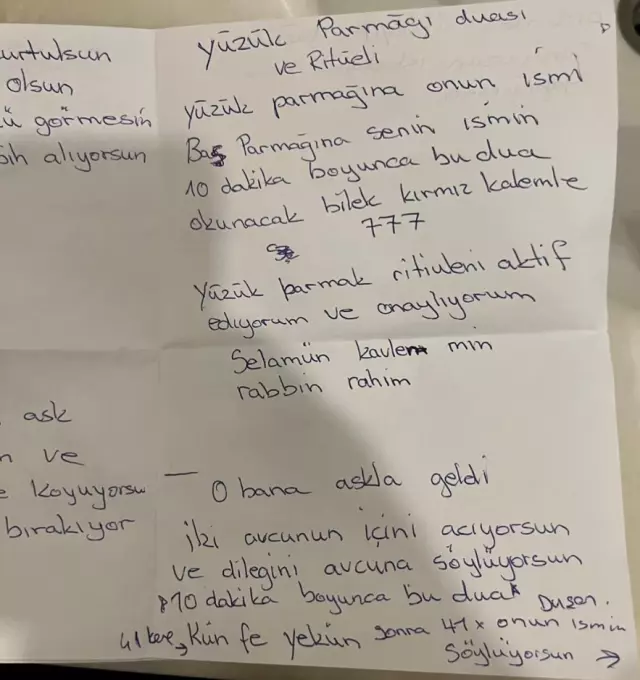 urtulsun
olsun
ü görmesin
ih alıyorsun
yüzük Parmağı duası
ve Ritüeli
yüzük parmağına onun ismi
Baş Parmağına senin ismin
10 dakika boyunca bu dua
okunacak bilek kırmız kalemle
777
yüzük parmak ritiuleni aktif
ediyorum ve onaylıyorum
Selamün kavlem min
rabbin rahim
ask
n ve
e koyuyorsu
bırakıyor
— O bana askla geldi
iki avcunun içini acıyorsun
ve dilegini avcuna söylüyorsun
10 dakika boyunca bu dua
41 kere, Kün fe yekün sonra 41x onun ismin
söylüyorsun →